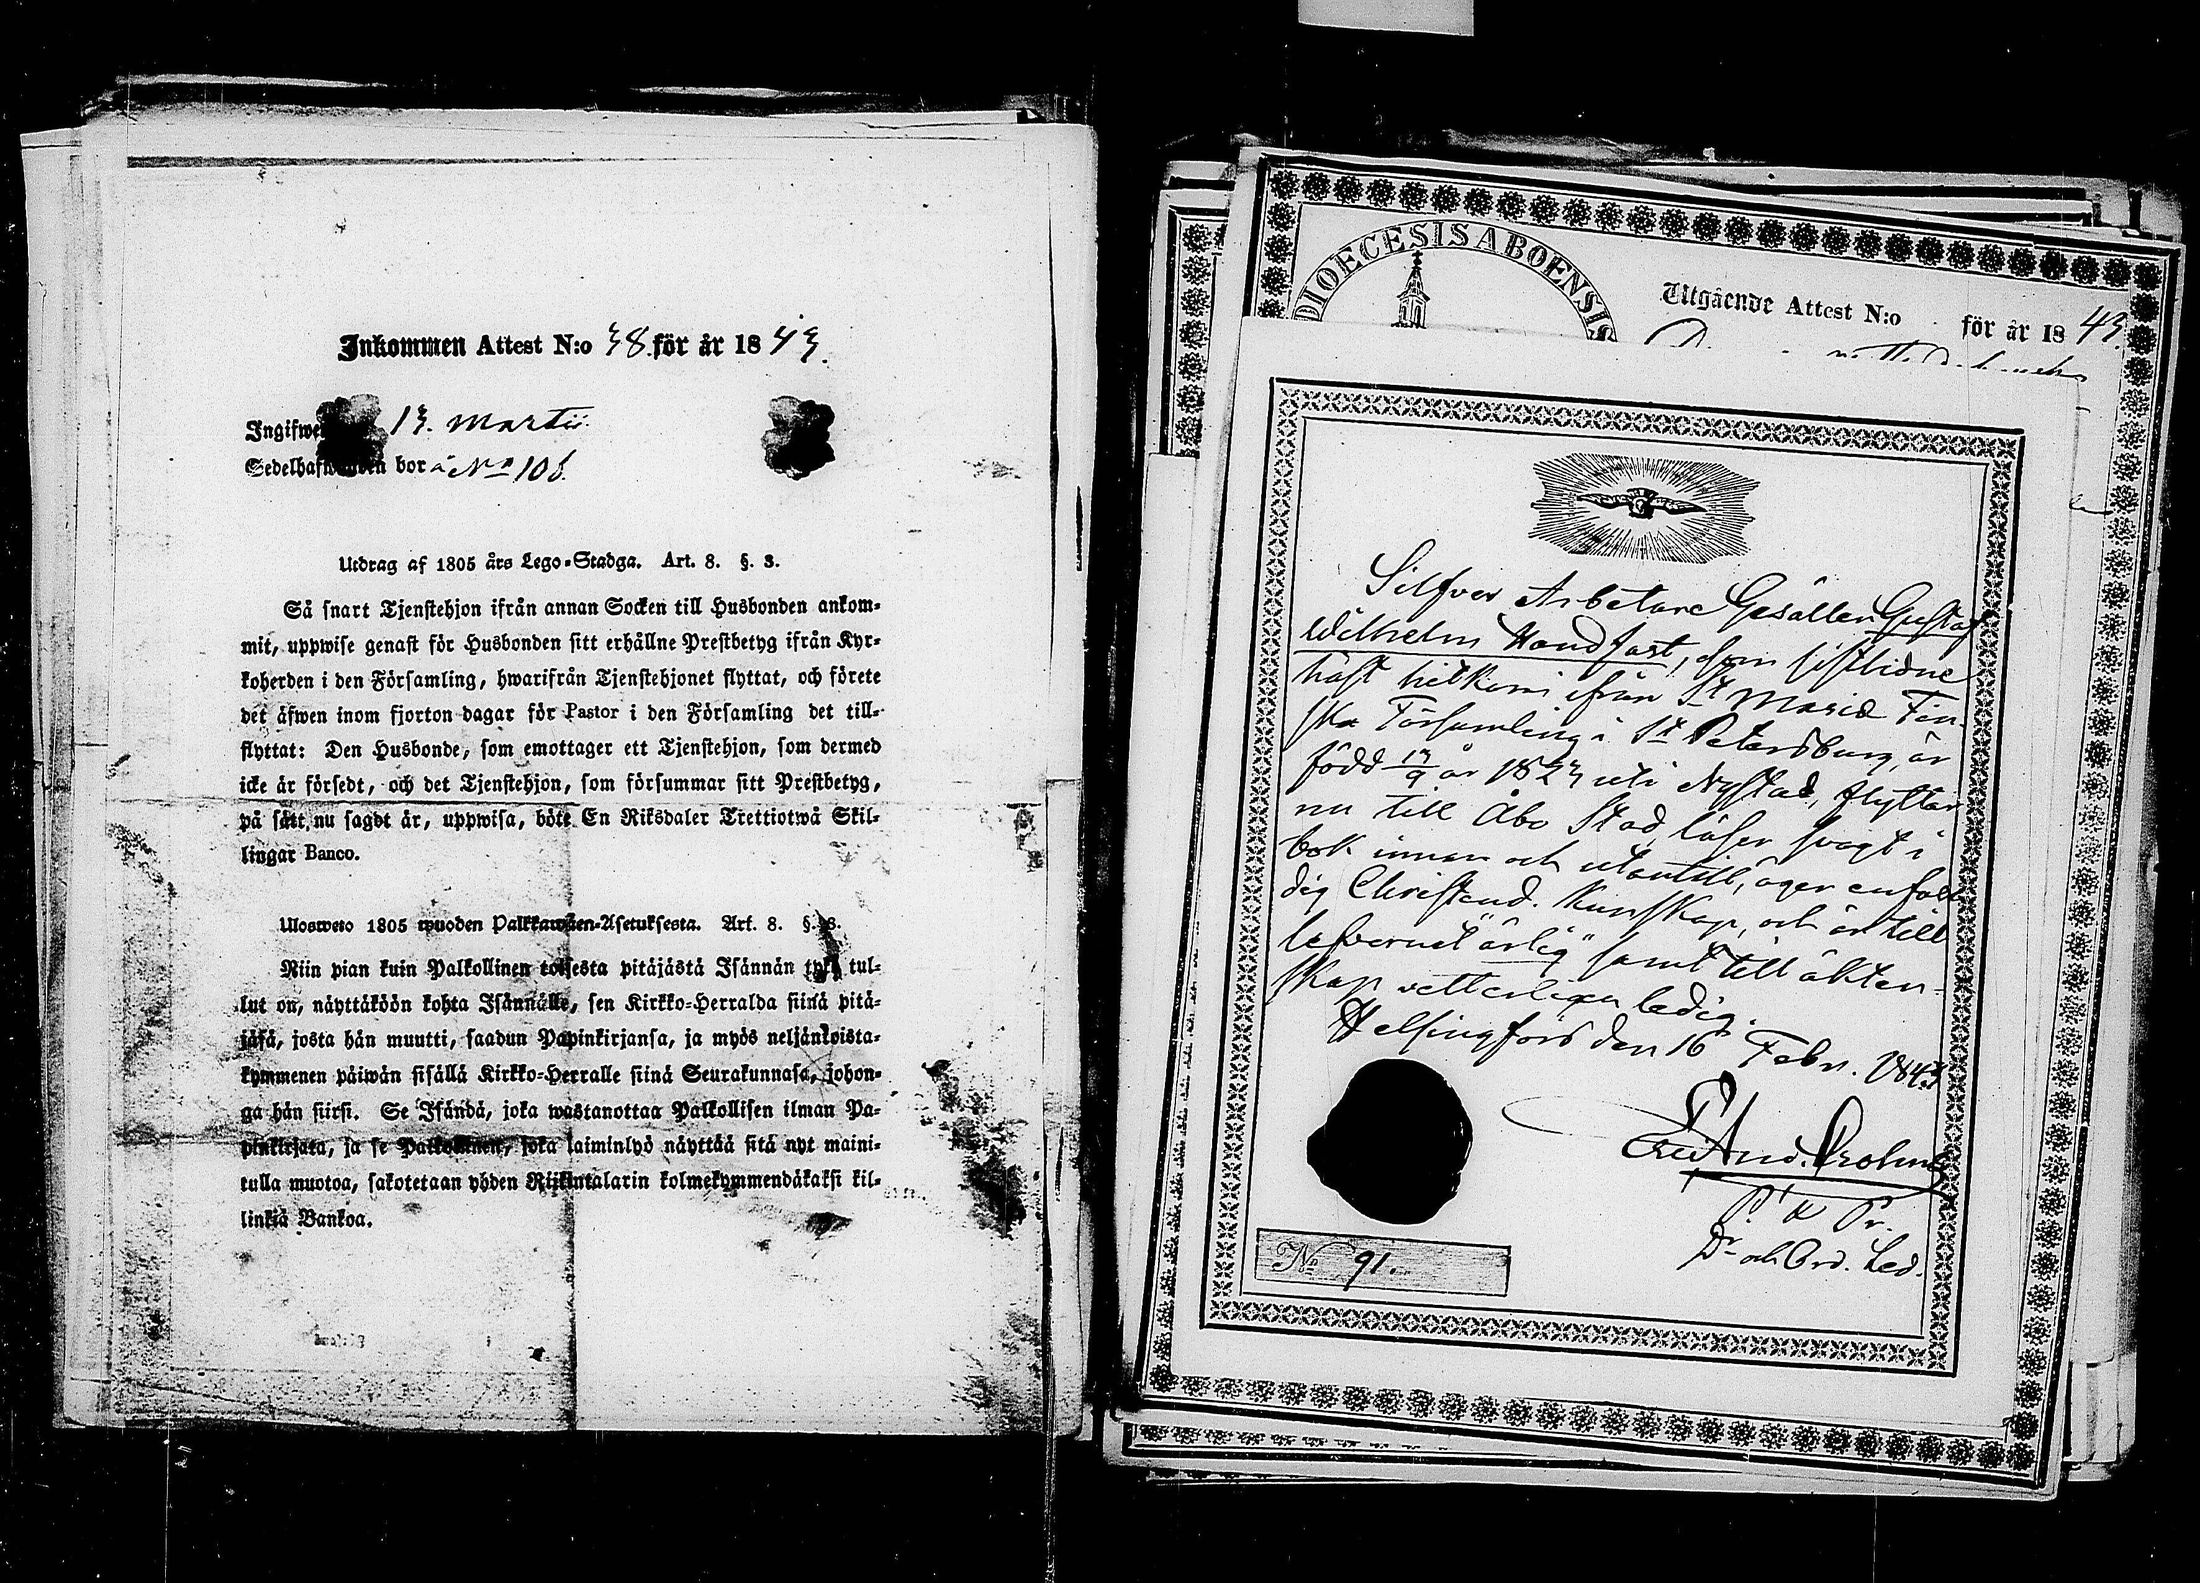 Inkommen Attest N:o 38. för år 1843.
13. Martii
bor å No 106.
Utdrag af 1805 års Lego-Stadga. Art. 8. §. 3.
Så snart Tjenstehjon ifrån annan Socken till Husbonden ankom-
mit, uppwise genast för Husbonden sitt erhållne Prestbetyg ifrån Kyr-
koherden i den Församling, hwarifrån Tjenstehjonet flyttat, och förete
det äfwen inom fjorton dagar för Pastor i den Församling det till-
flyttat: Den Husbonde, som emottager ett Tjenstehjon, som dermed
icke är försedt, och det Tjenstehjon, som försummar sitt Prestbetyg,
på sätt nu sagdt är, uppwisa, böte En Riksdaler Trettiotwå Skil-
lingar Banco.
Ulosweto 1805 wuoden Palkkawäen-Asetuksesta. Art. 8. §. 3.
Niin pian kuin Palkollinen toisesta pitäjästä Isännän tykö tul-
lut on, näyttäköön kohta Isännälle, sen Kirkko-Herralda siinä pitä-
jäsä, josta hän muutti, saadun Papinkirjansa, ja myös neljäntoista-
kymmenen päiwän sisällä Kirkko-Herralle siinä Seurakunnasa, johon-
ga hän siirsi. Se Isändä, joka wastanottaa Palkollisen ilman Pa-
pinkirjata, ja se Palkollinen, joka laiminlyö näyttää sitä nyt maini-
tulla muotoa, sakotetaan yhden Riikintalarin kolmekymmendäkaksi kil-
linkiä Bankoa.
DIOECESIS ABOENSIS
Utgående Attest N:o för år 1843.
Silfver Arbetare Gesällen Gustaf
Wilhelm Handfast, som sistlidne
höst hitkom ifrån St Mariæ Fin-
ska Församling i St Petersburg, är
född 17/9 år 1823 uti Nystad, flyttar
nu till Åbo Stad, läser svagt i
bok innan och utantill, äger enfal-
dig Christend. Kunskap, och är till
lefvernet "ärlig" samt till äkten-
skap vetterligen ledig.
Helsingfors den 16 Febr. 1843
P. V. Pr.
Dr och Ord. Led.
No 91.